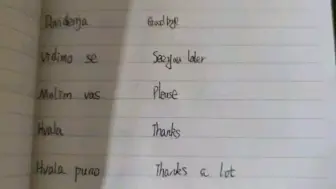 Doviđenja Goodbye
Vidimo se See you later
Molim vas Please
Hvala Thanks
Hvala puno Thanks a lot